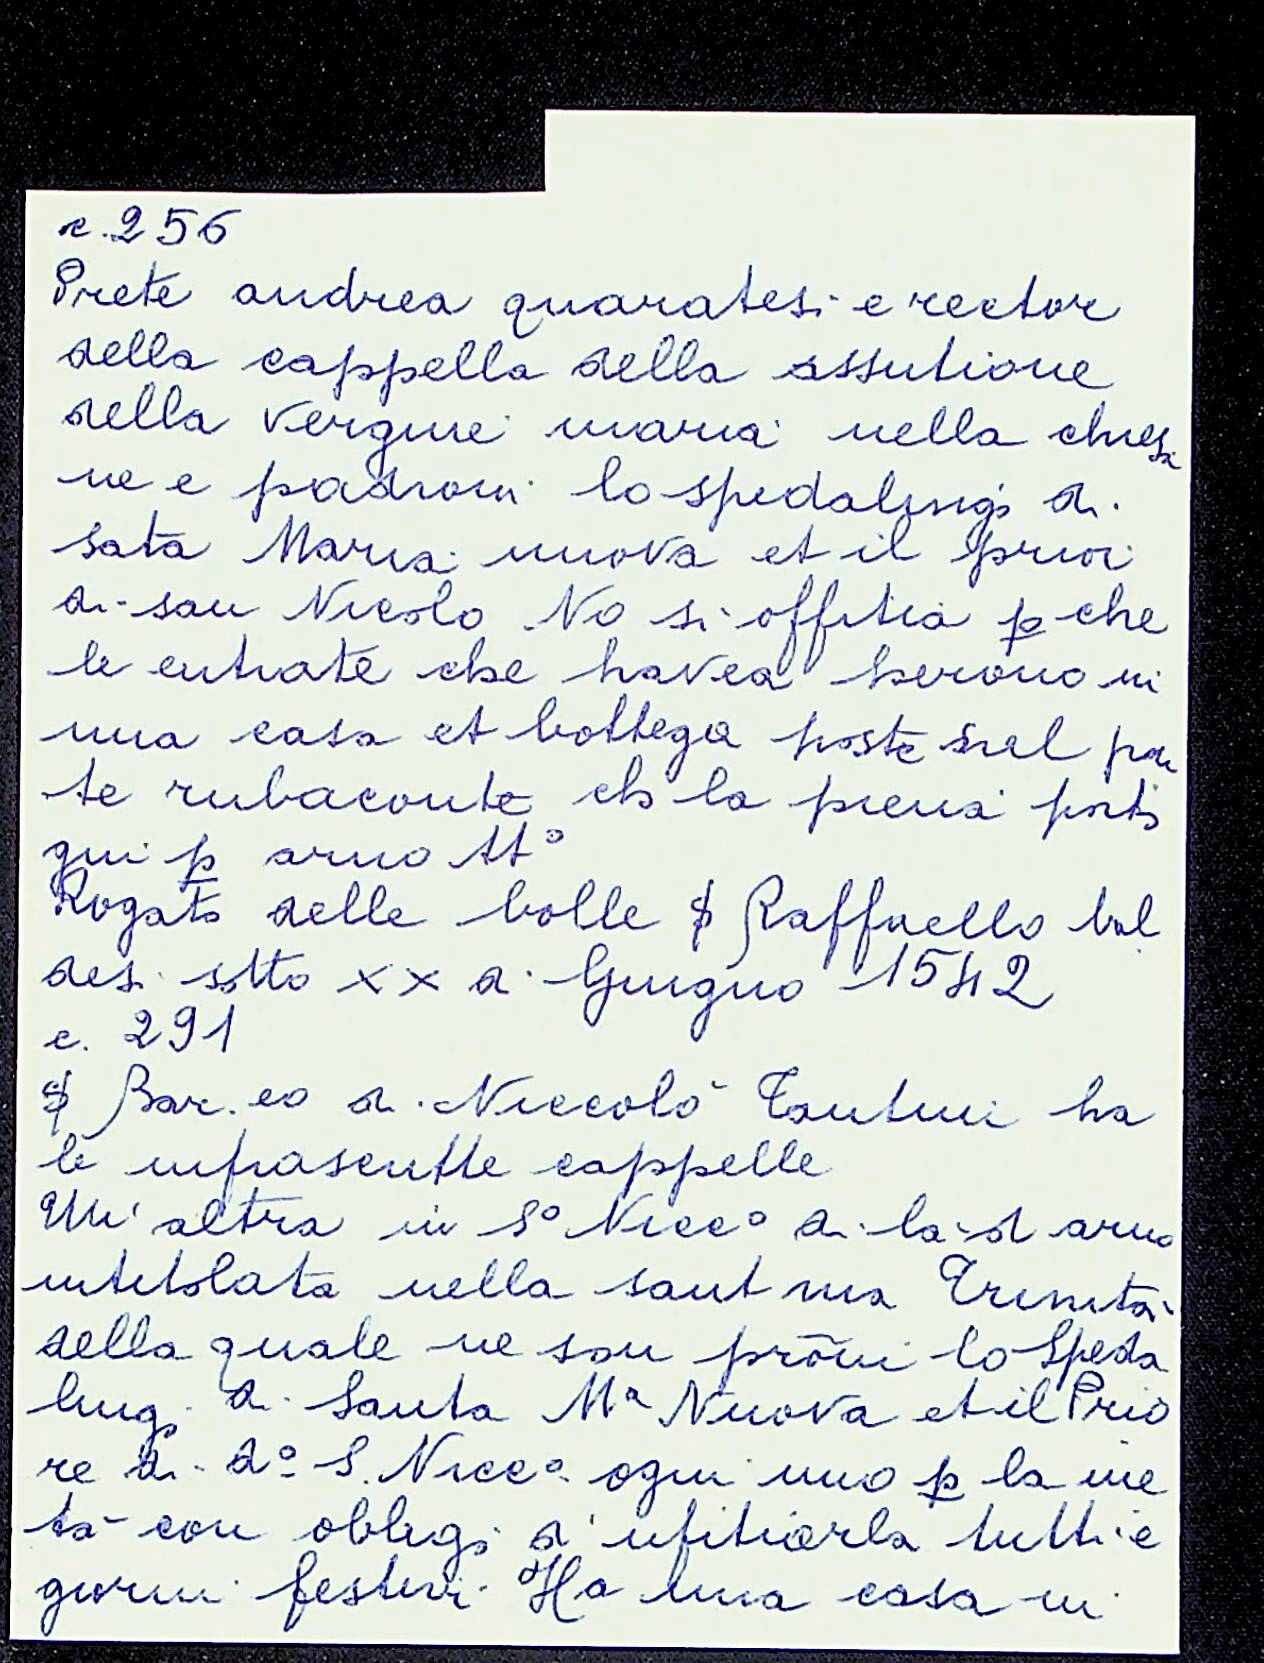 c. 256
Prete andrea quaratesi e rector
della cappella della assutione
della vergine maria nella chiesa
ne e padroni lo spedalingo di
sata Maria nuova et il prior
di san Nicolo No si offitia p che
le entrate che havea serono in
una casa et bottega poste sul pon
te rubaconte ch la piena porto
qui p arno tt°
Rogato delle bolle $ Raffaello bal
desi sotto xx di Giugno 1542
c. 291
$ Bar.eo di Niccolò Tantini ha
le infrascritte cappelle
Un' altra in S° Nicc° di la d arno
intitolata nella sant ma Trinità
della quale ne son prōni lo Speda
lingo di Santa Mª Nuova et il Prio
re di d° S. Nicc° ogni uno p la me
tà con obligo d'ufitiarla tutti e
giorni festivi. Ha una casa in